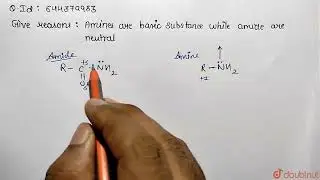 Q.Id : 644372983
Give reasons : Amines are basic substance while amide are
neutral
Amide
Amine
R - C - N̈H₂
R - N̈H₂
+I
O
doubtnut